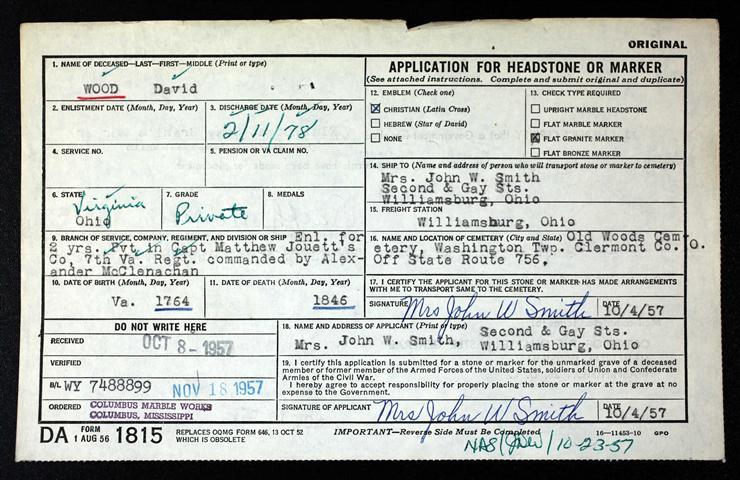 ORIGINAL
1. NAME OF DECEASED—LAST—FIRST—MIDDLE (Print or type)
WOOD David
2. ENLISTMENT DATE (Month, Day, Year)
3. DISCHARGE DATE (Month, Day, Year)
2/11/78
4. SERVICE NO.
5. PENSION OR VA CLAIM NO.
6. STATE
Virginia
Ohio
7. GRADE
Private
8. MEDALS
9. BRANCH OF SERVICE, COMPANY, REGIMENT, AND DIVISION OR SHIP Enl. for
2 yrs. Pvt in Capt Matthew Jouett's
Co, 7th Va. Regt. commanded by Alex-
ander McClenachan
10. DATE OF BIRTH (Month, Day, Year)
Va. 1764
11. DATE OF DEATH (Month, Day, Year)
1846
APPLICATION FOR HEADSTONE OR MARKER
(See attached instructions. Complete and submit original and duplicate)
12. EMBLEM (Check one)
CHRISTIAN (Latin Cross)
HEBREW (Star of David)
NONE
13. CHECK TYPE REQUIRED
UPRIGHT MARBLE HEADSTONE
FLAT MARBLE MARKER
FLAT GRANITE MARKER
FLAT BRONZE MARKER
14. SHIP TO (Name and address of person who will transport stone or marker to cemetery)
Mrs. John W. Smith
Second & Gay Sts.
Williamsburg, Ohio
15. FREIGHT STATION
Williamsburg, Ohio
16. NAME AND LOCATION OF CEMETERY (City and State) Old Woods Cem-
etery, Washington Twp. Clermont Co. O.
Off State Route 756.
17. I CERTIFY THE APPLICANT FOR THIS STONE OR MARKER HAS MADE ARRANGEMENTS
WITH ME TO TRANSPORT SAME TO THE CEMETERY.
SIGNATURE Mrs John W Smith
DATE
10/4/57
DO NOT WRITE HERE
RECEIVED OCT 8-1957
VERIFIED
B/L WY 7488899 NOV 18 1957
ORDERED COLUMBUS MARBLE WORKS
COLUMBUS, MISSISSIPPI
18. NAME AND ADDRESS OF APPLICANT (Print or type)
Mrs. John W. Smith, Second & Gay Sts.
Williamsburg, Ohio
19. I certify this application is submitted for a stone or marker for the unmarked grave of a deceased
member or former member of the Armed Forces of the United States, soldiers of Union and Confederate
Armies of the Civil War.
I hereby agree to accept responsibility for properly placing the stone or marker at the grave at no
expense to the Government.
SIGNATURE OF APPLICANT Mrs John W Smith
DATE
10/4/57
DA FORM 1 AUG 56 1815
REPLACES OQMG FORM 646, 13 OCT 52
WHICH IS OBSOLETE
IMPORTANT—Reverse Side Must Be Completed
16—11453-10 GPO
10-23-57